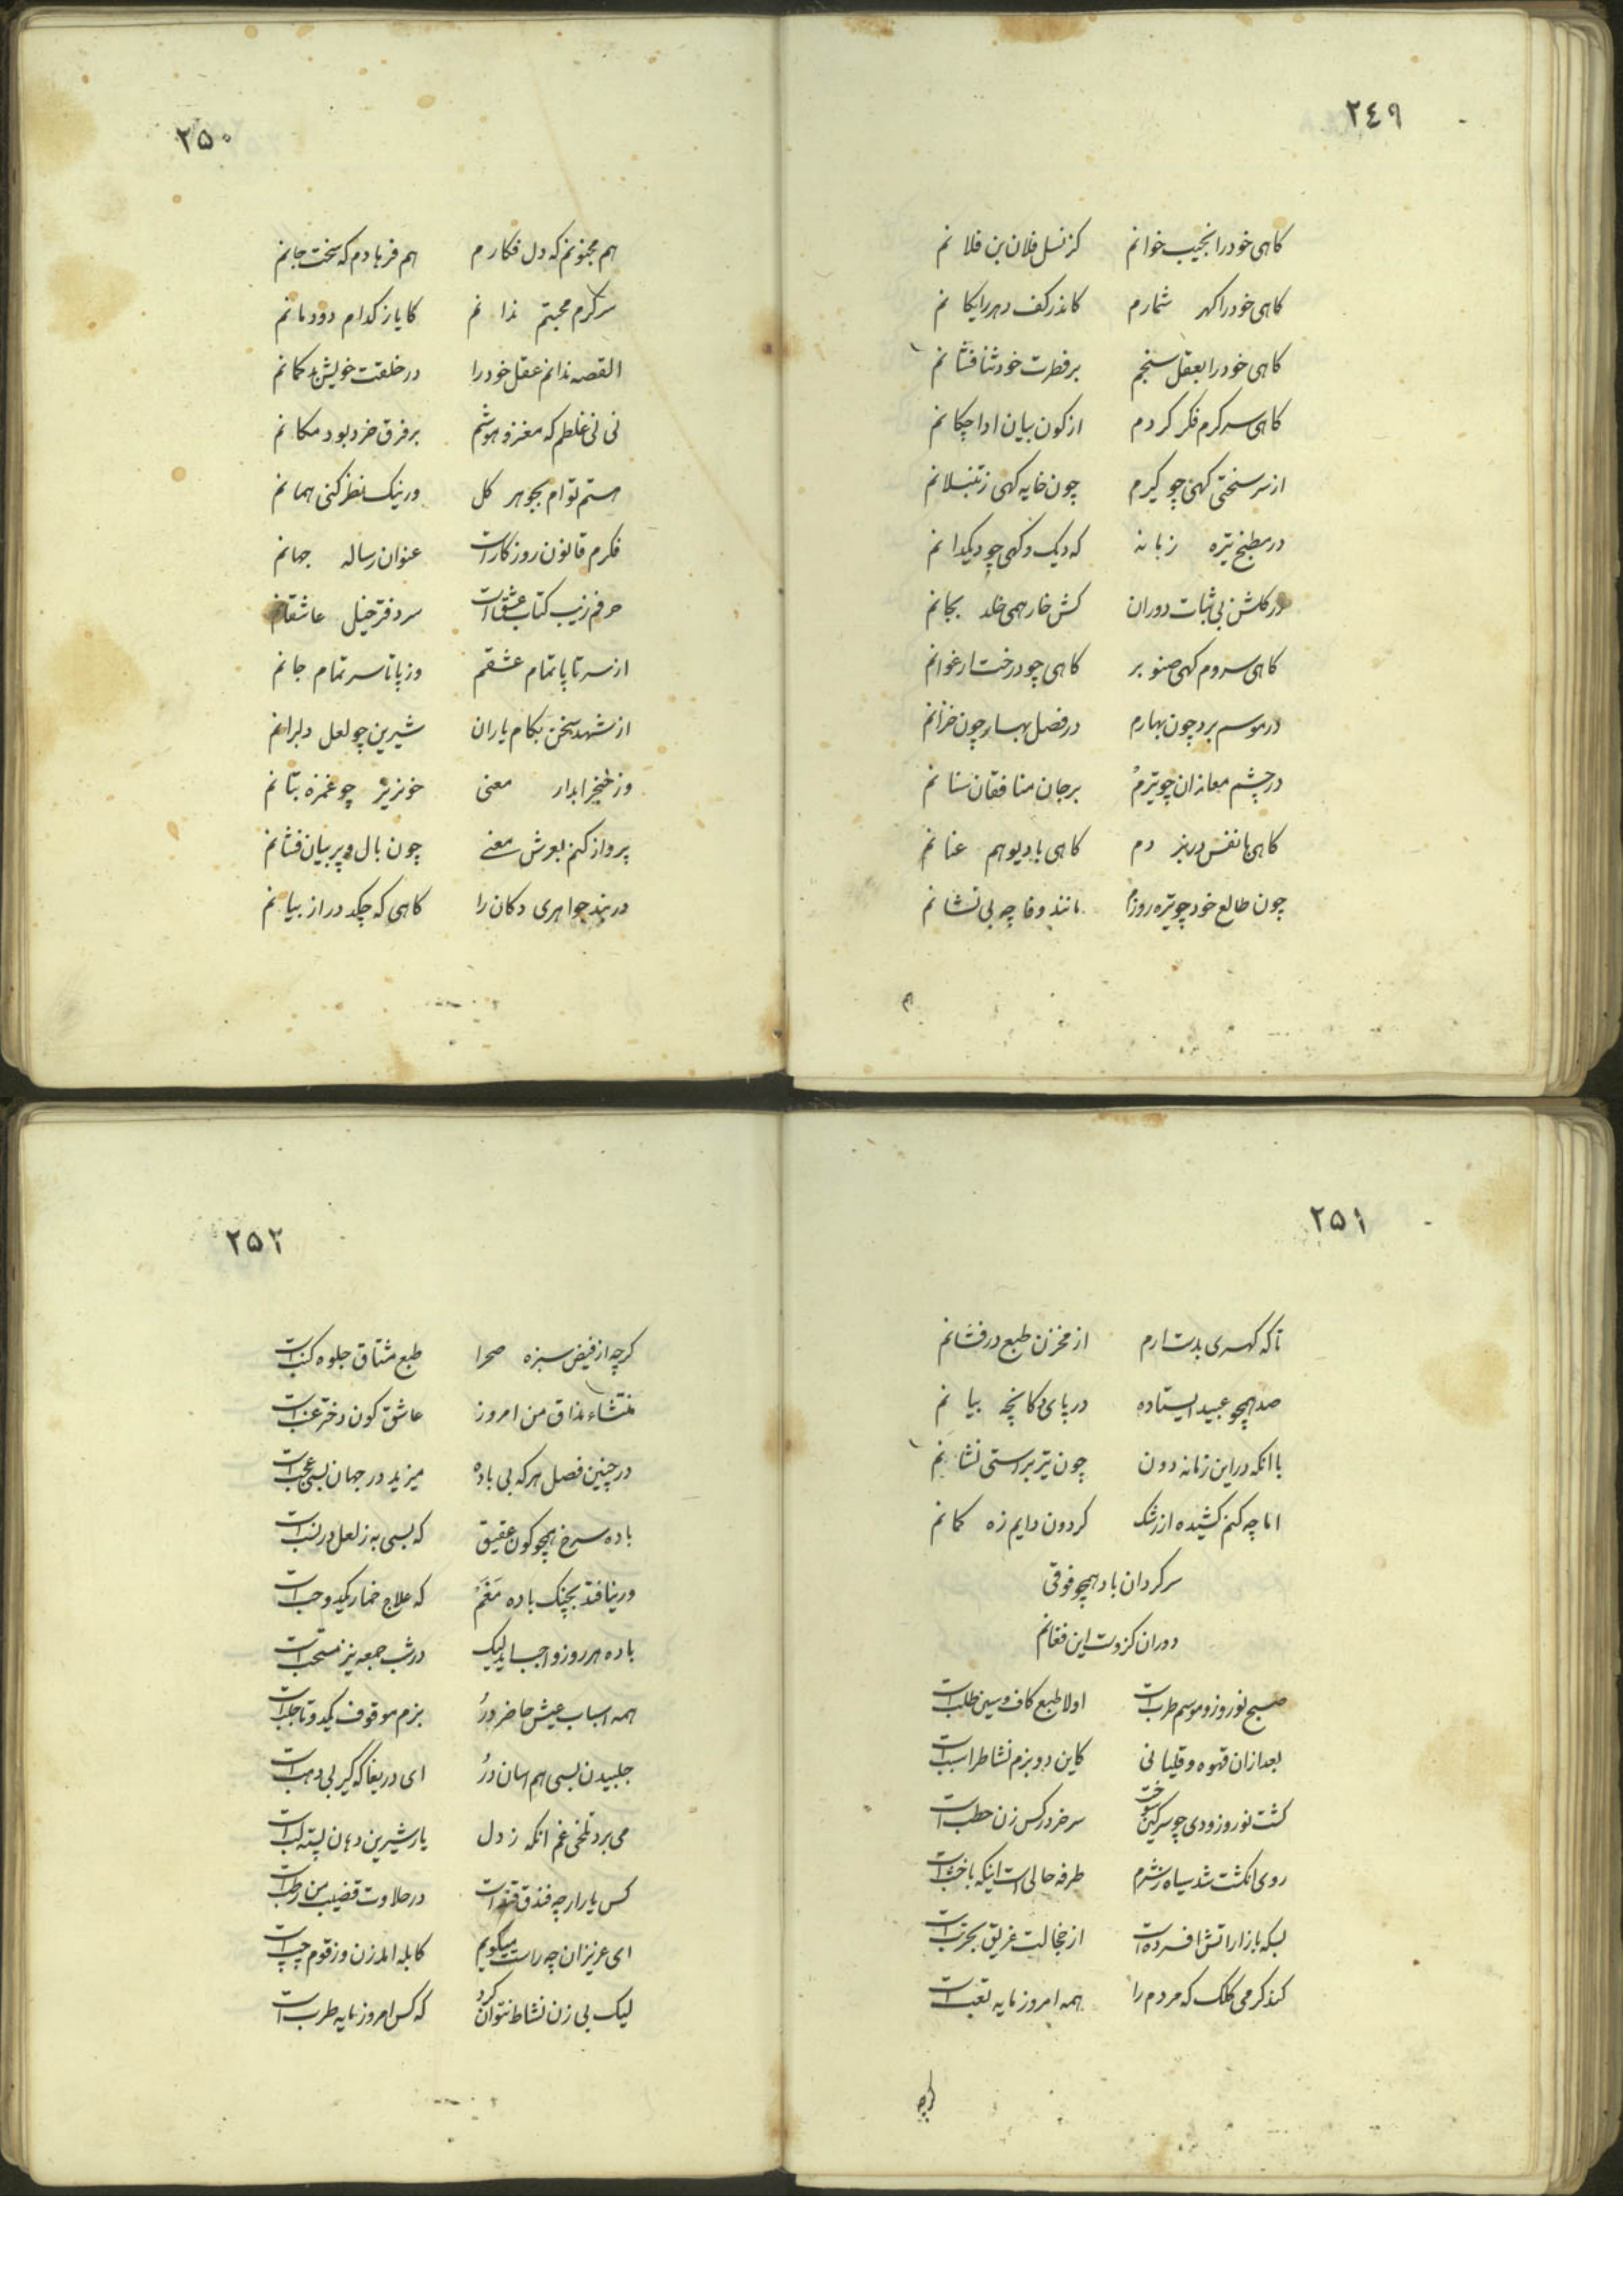 ٢٤٩
کاهی خود را نجیب خوانم کز نسل فلان بن فلانم
کاهی خود را کهر شمارم کاندر کف دهر رایکانم
کاهی خود را بعقل سنجم بر فطرت خود ثنا فشانم
کاهی سرکرم فکر کردم از کون بیان ادا چکانم
از سر سختی کهی چو کیرم چون خایه کهی ز تنبلانم
در مطبخ تیره زبانه که دیک و کهی چو دیکدانم
در کلشن بی ثبات دوران کش خار همی خلد بجانم
کاهی سروم کهی صنوبر کاهی چو درخت ارغوانم
در موسم برد چون بهارم در فصل بهار چون خزانم
در چشم معاندان چو تیرم بر جان منافقان سنانم
کاهی با نفس در نبردم کاهی با دیو هم عنانم
چون طالع خود چو تیره روزم مانند وفا چه بی نشانم
هم
٢٥٠
هم مجنونم که دل فکارم هم فرهادم که سخت جانم
سرکرم محبتم ندانم کایا ز کدام دودمانم
القصه ندانم عقل خود را در خلقت خویش در کمانم
نی نی غلطم که مغز و هوشم بر فرق خرد بود مکانم
هستم توام بجوهر کل ور نیک نظر کنی همانم
فکرم قانون روزکار است عنوان رساله جهانم
حرفم زیب کتاب عشق است سر دفتر خیل عاشقانم
از سر تا پا تمام عشقم وز پا تا سر تمام جانم
از شهد سخن بکام یاران شیرین چو لعل دلبرانم
وز خنجر ابدار معنی خونریز چو غمزه بتانم
پرواز کنم بعرش معنی چون بال و پر بیان فشانم
در بند جواهری دکان را کاهی که چکد در از بیانم
٢٥١
تا که کهری بدست ارم از مخزن طبع در فشانم
صد همچو عبید ایستاده در پای دکانچه بیانم
با انکه در این زمانه دون چون تیر براستی نشانم
اما چه کنم کشیده از رشک کردون دایم زه کمانم
سرکردان باد همچو فوقی
دوران کزوست این فغانم
صبح نوروز و موسم طرب است اولا طبع کاف و سین طلب است
بعد ازان قهوه و قلیانی کاین دو بزم نشاط را سبب است
کشت نوروز و دی چو سرکین سوخت سر خر در کس زن حطب است
روی انکشت شد سیاه ز شرم طرفه حالی است اینکه با خشب است
بسکه بازار اتش افسرده است از خجالت غریق بحر تب است
کند کرمی کلک که مردم را همه امروز مایه تعب است
کرچه
٢٥٢
کرچه از فیض سبزه صحرا طبع مشتاق جلوه کنب است
منشاء مذاق من امروز عاشق کون دختر عنب است
در چنین فصل هر که بی باده میزید در جهان بسی عجب است
باده سرخ همچو کون عقیق که بسی به ز لعل در نسب است
ور نیافتد بچنک باده مغم که علاج خمار یکدو حب است
باده هر روز واجب اید لیک در شب جمعه نیز مستحب است
همه اسباب عیش حاضر در بزم موقوف یکدو تا جلب است
جلبیدن بسی هم اسان در ای دریغا که کیر بی دهب است
می برد تلخی غم انکه ز دل یار شیرین دهان پسته لب است
کس یار ارچه فندق قند است در حلاوت قضیب من رطب است
ای عزیزان چه راست میکویم کابله امد زن و ز قوم چپ است
لیک بی زن نشاط نتوان کرد که کس امروز مایه طرب است